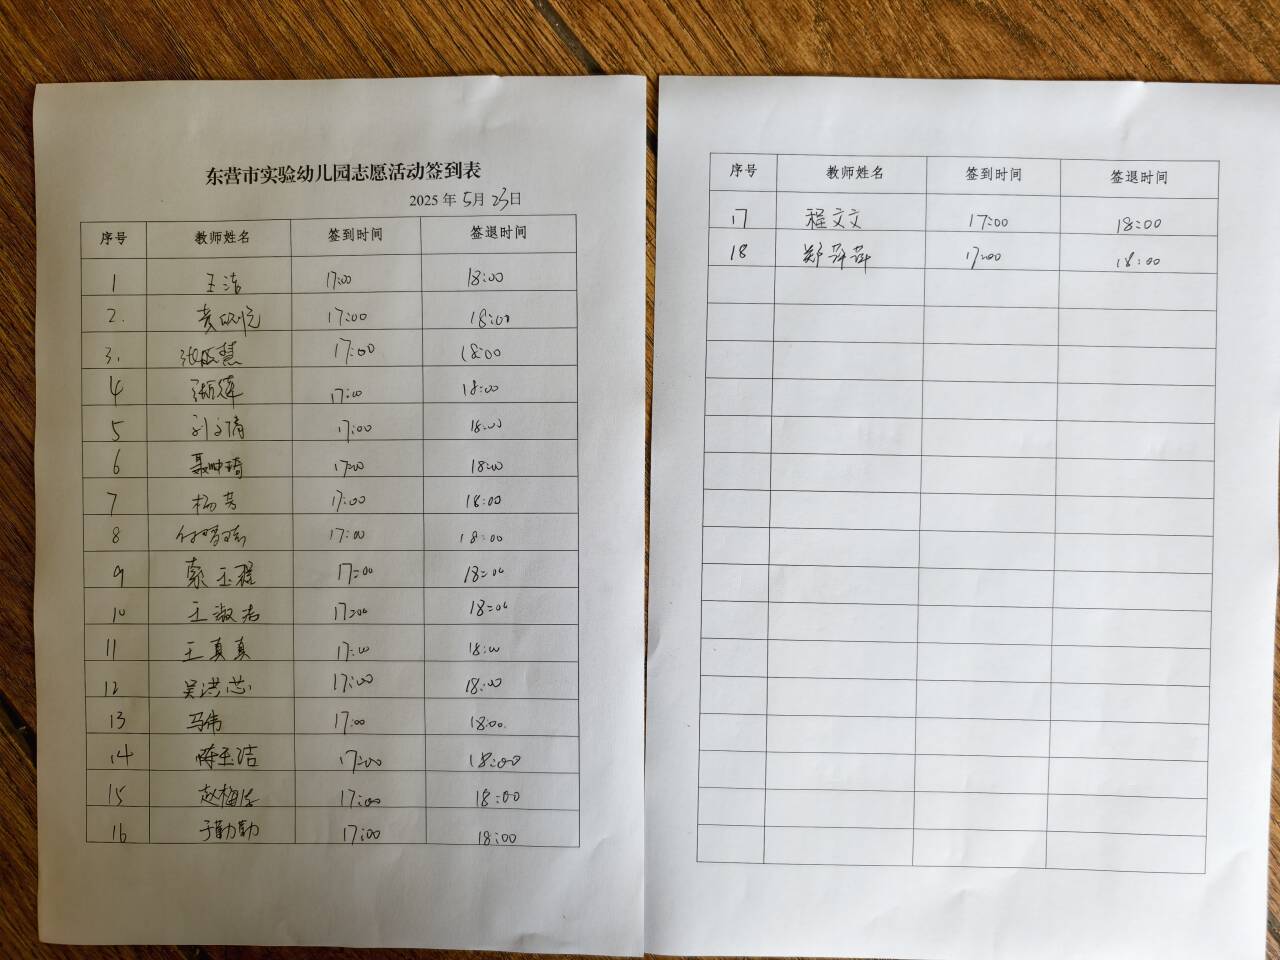 东营市实验幼儿园志愿活动签到表
2025 年 5月 23日
序号 教师姓名 签到时间 签退时间
1 王洁 17:00 18:00
2. 17:00 18:00
3. 17:00 18:00
4 17:00 18:00
5 刘文倩 17:00 18:00
6 聂坤琦 17:00 18:00
7 杨芳 17:00 18:00
8 17:00 18:00
9 索玉程 17:00 18:00
10 王淑 17:00 18:00
11 王真真 17:00 18:00
12 吴洪蕊 17:00 18:00
13 马伟 17:00 18:00
14 陈玉洁 17:00 18:00
15 赵梅 17:00 18:00
16 于勤勤 17:00 18:00
序号 教师姓名 签到时间 签退时间
17 程文文 17:00 18:00
18 郑萍萍 17:00 18:00